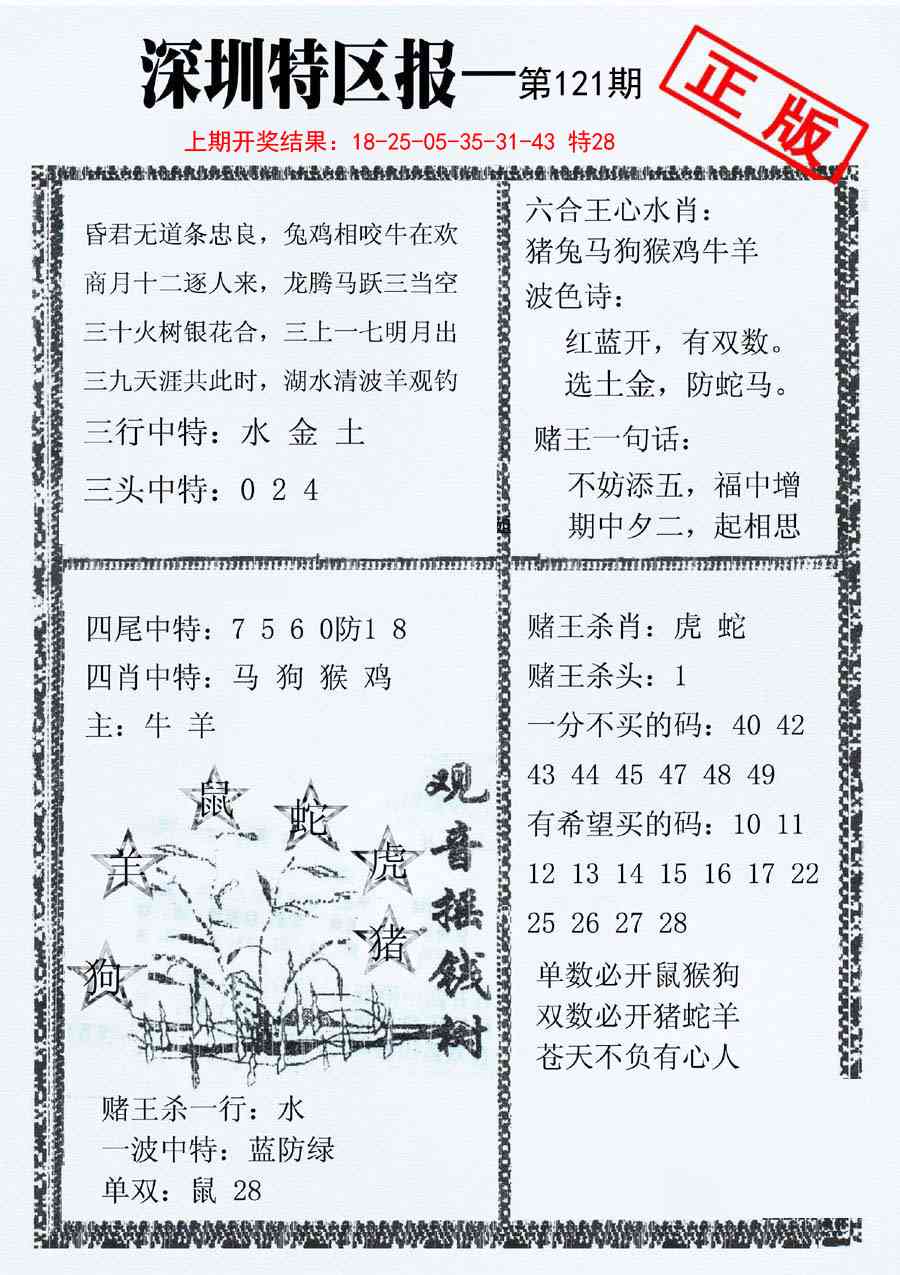 深圳特区报—第121期
正版
上期开奖结果：18-25-05-35-31-43 特28
昏君无道条忠良，兔鸡相咬牛在欢
商月十二逐人来，龙腾马跃三当空
三十火树银花合，三上一七明月出
三九天涯共此时，湖水清波羊观钓
三行中特：水 金 土
三头中特：0 2 4
六合王心水肖：
猪兔马狗猴鸡牛羊
波色诗：
红蓝开，有双数。
选土金，防蛇马。
赌王一句话：
不妨添五，福中增
期中夕二，起相思
四尾中特：7 5 6 0防1 8
四肖中特：马 狗 猴 鸡
主：牛 羊
鼠
蛇
羊
虎
猪
狗
观音摇钱树
赌王杀一行：水
一波中特：蓝防绿
单双：鼠 28
赌王杀肖：虎 蛇
赌王杀头：1
一分不买的码：40 42
43 44 45 47 48 49
有希望买的码：10 11
12 13 14 15 16 17 22
25 26 27 28
单数必开鼠猴狗
双数必开猪蛇羊
苍天不负有心人